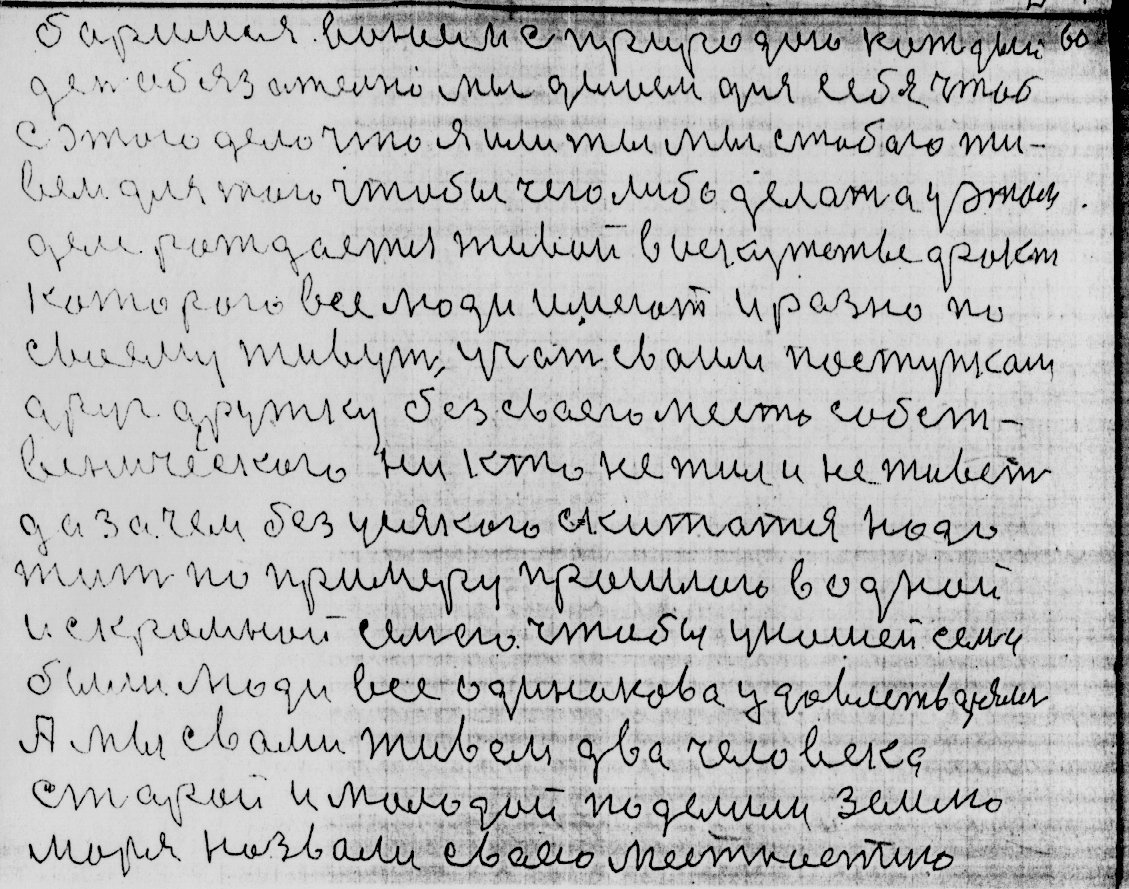 баримся воюем с природою каждый во
ден обязателно мы делаем для себя чтоб
с этого дело что я или ты мы с тобаю жи-
вем для того чтобы чего либо делат а у этом
деле рождается живой в искустве факт
которого все люди имеют и разно по
своему живут, учат своим поступкам
друг дружку без своего месть собст-
веническаго ни кто не жил и не живет
да зачем без усякого скитатся надо
жит по примеру прошлого в одной
и скромной семьею чтобы у нашей семи
были люди все одинакова удовлетвдряли
А мы с вами живем два человека
старой и молодой поделили землю
моря назвали сваею местностию